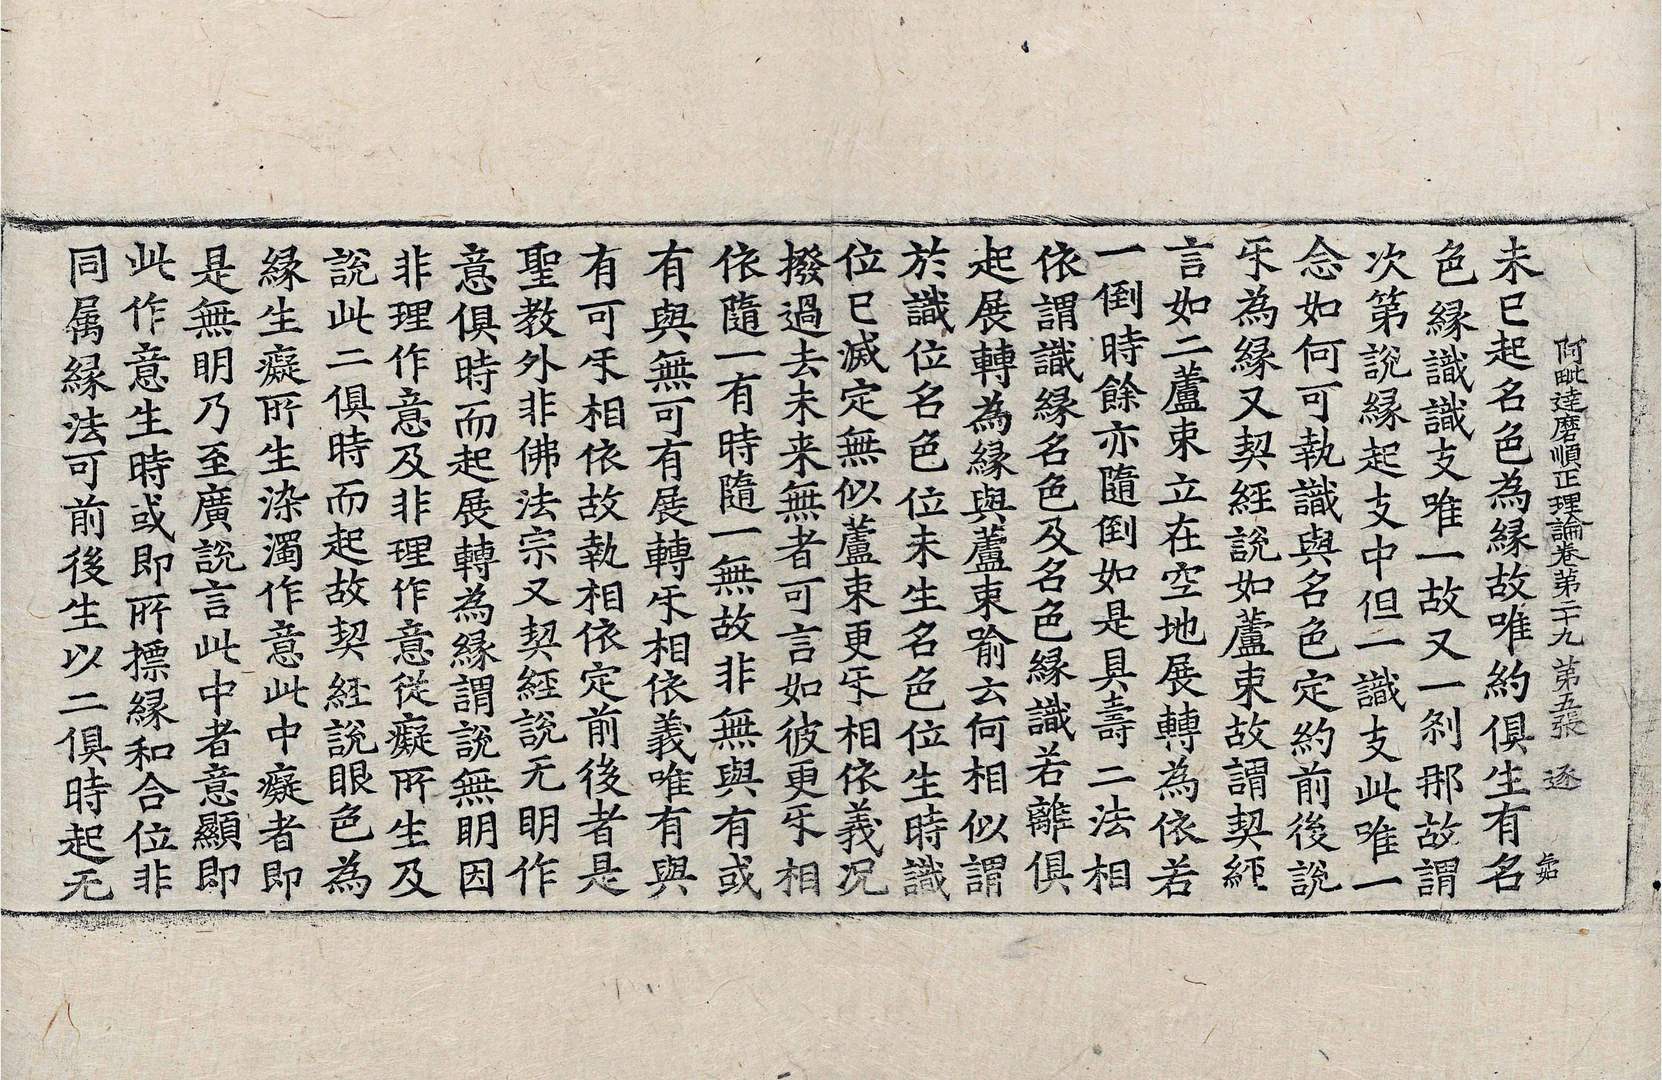 阿毗達磨順正理論卷第二十九 第五張 逐
未已起名色為緣故唯約俱生有名
色緣識識支唯一故又一刹那故謂
次第說緣起支中但一識支此唯一
念如何可執識與名色定約前後說
乐為緣又契經說如蘆束故謂契經
言如二蘆束立在空地展轉為依若
一倒時餘亦隨倒如是具壽二法相
依謂識緣名色及名色緣識若離俱
起展轉為緣與蘆束喻云何相似謂
於識位名色位未生名色位生時識
位已滅定無似蘆束更乐相依義況
撥過去未来無者可言如彼更乐相
依隨一有時隨一無故非無與有或
有與無可有展轉乐相依義唯有與
有可乐相依故執相依定前後者是
聖教外非佛法宗又契經說无明作
意俱時而起展轉為緣謂說無明因
非理作意及非理作意從癡所生及
說此二俱時而起故契經說眼色為
緣生癡所生染濁作意此中癡者即
是無明乃至廣說言此中者意顯即
此作意生時或即所摽緣和合位非
同属緣法可前後生以二俱時起无